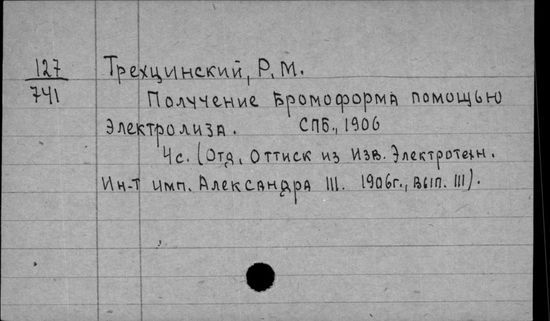 127
741
Трехцинский, Р. М.
Получение Бромоформа помощью
Электролиза. СПБ., 1906
4с. (Отд. Оттиск из Изв. Электротехн.
Ин-т имп. Александра III. 1906г., Вып. III).